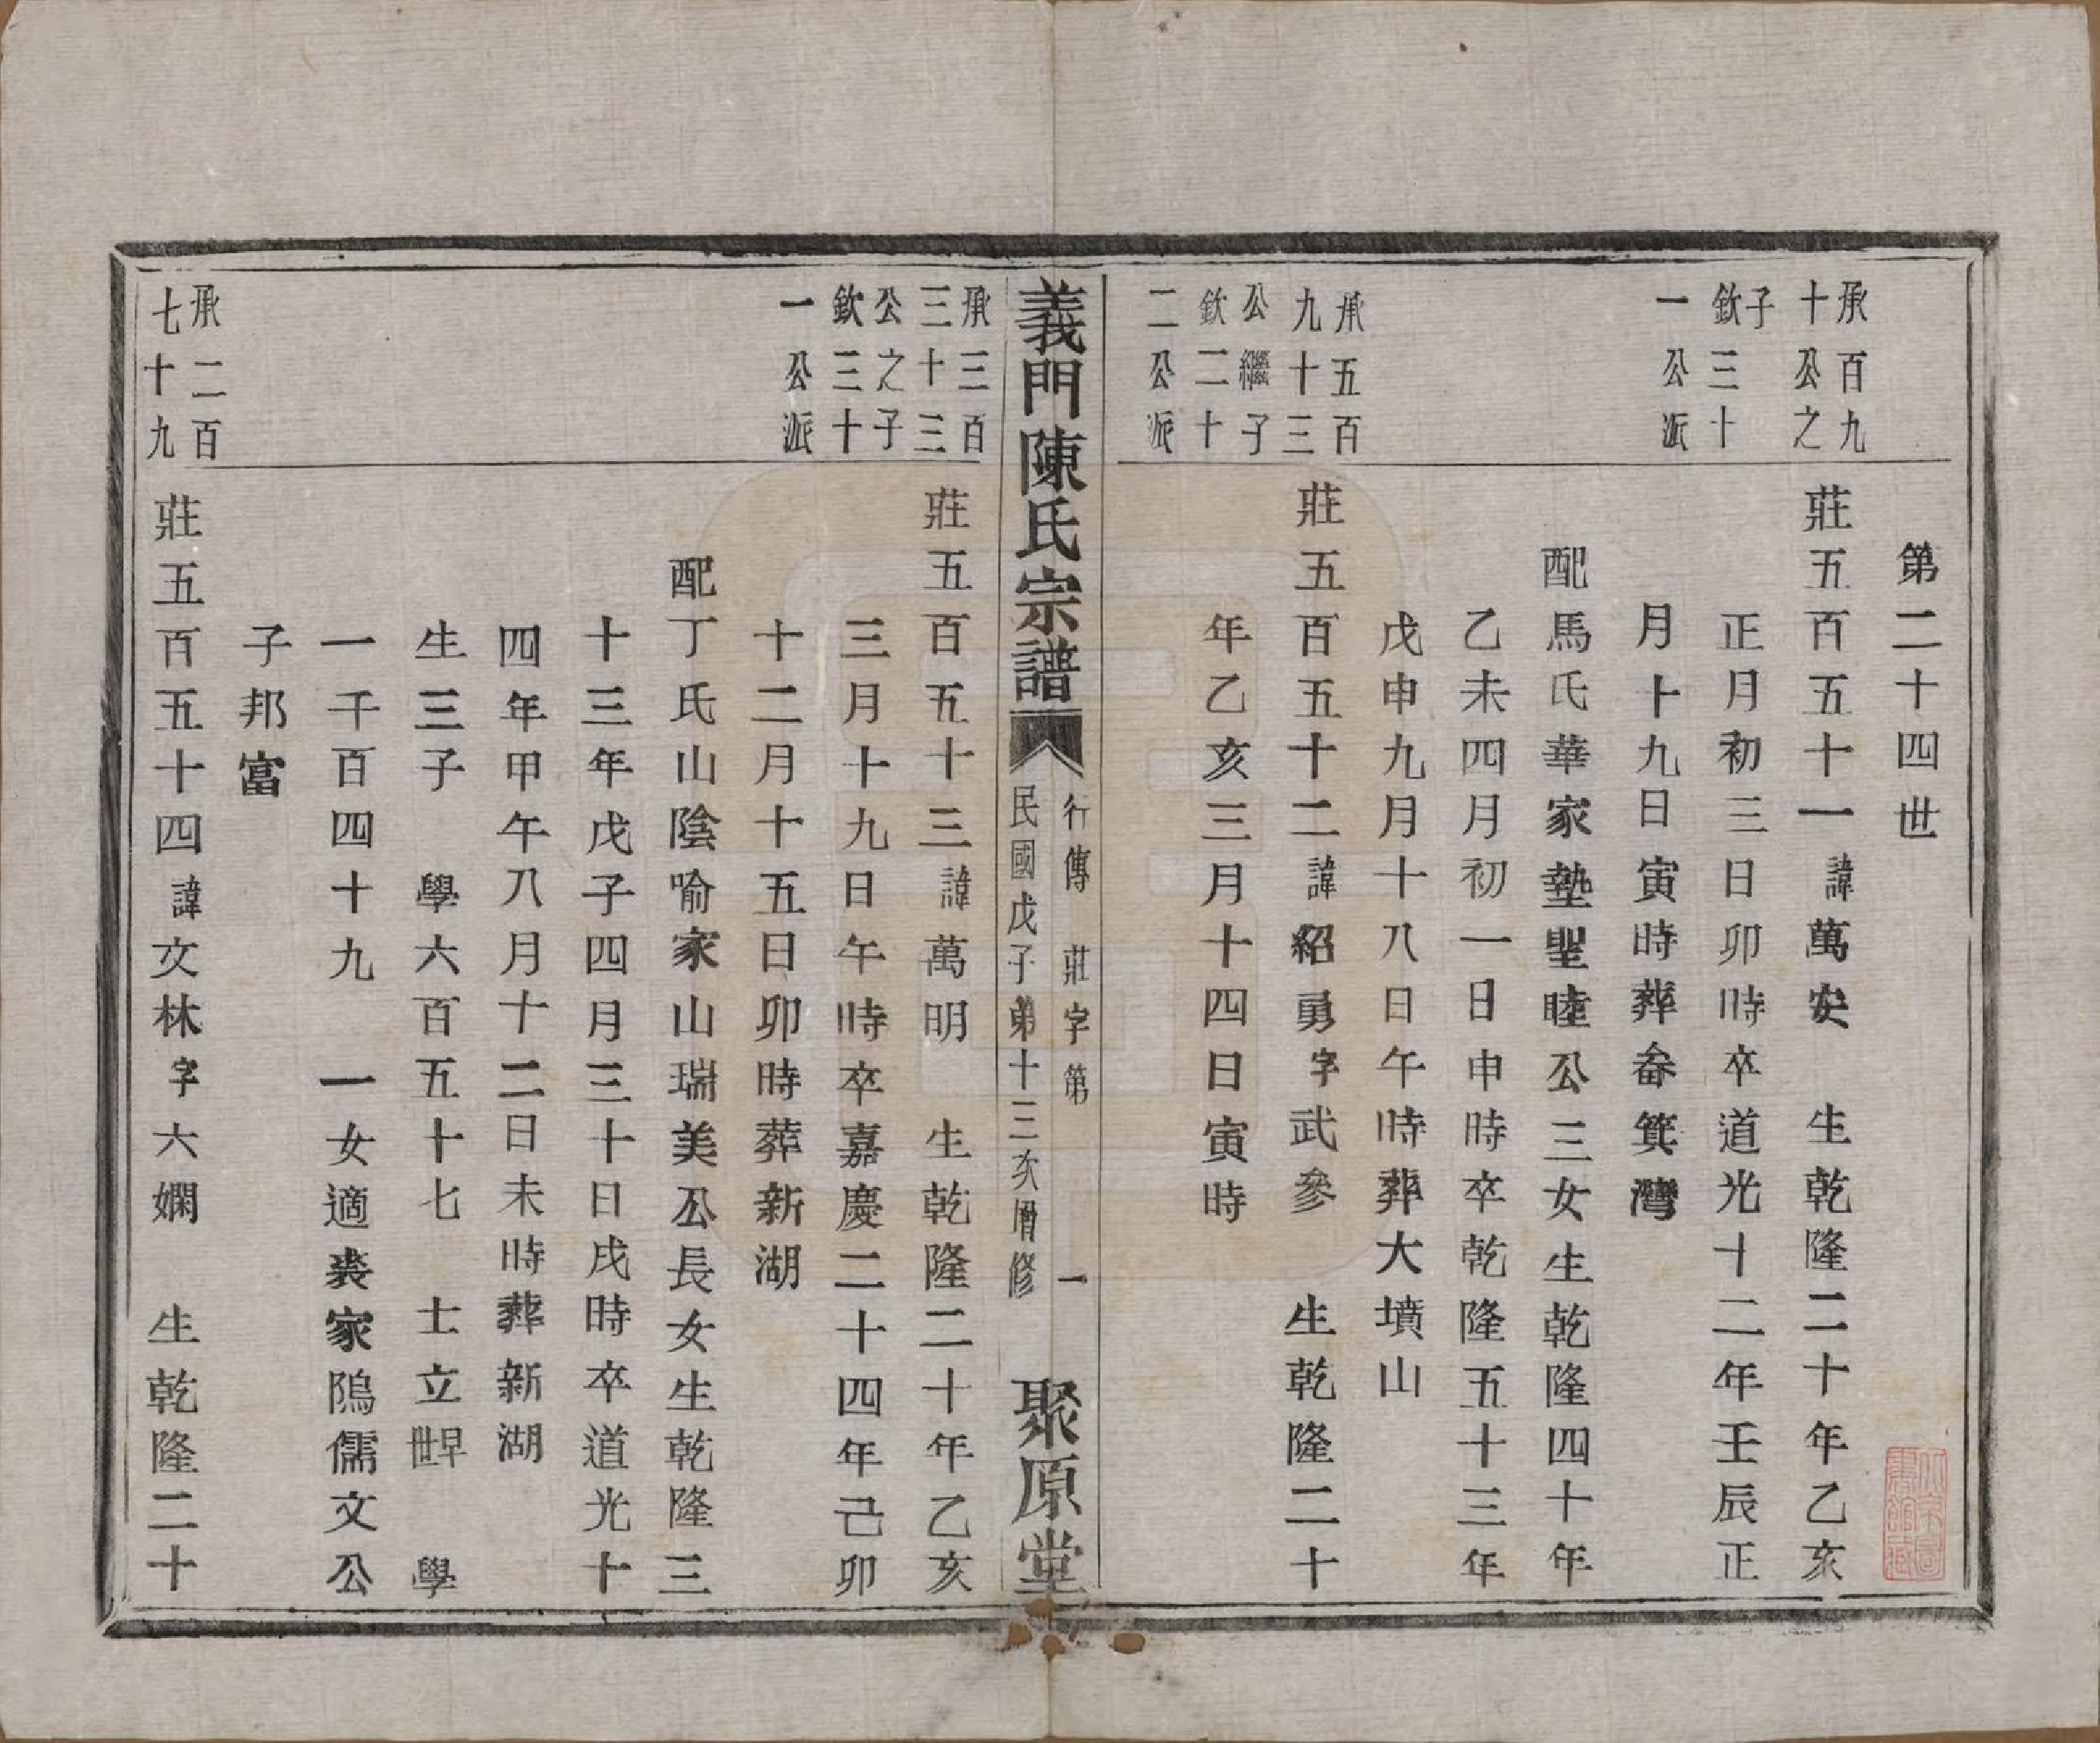 第二十四世
承百九
十公之
子
欽三十
一公派
莊五百五十一諱萬安　生乾隆二十年乙亥
正月初三日卯時卒道光十二年壬辰正
月十九日寅時葬畚箕灣
配馬氏華家墊聖睦公三女生乾隆四十年
乙未四月初一日申時卒乾隆五十三年
戊申九月十八日午時葬大墳山
承五百
九十三
公繼子
欽二十
二公派
莊五百五十二諱紹勇字武參　生乾隆二十
年乙亥三月十四日寅時
行傳　莊字第　一
義門陳氏宗譜
民國戊子第十三次增修
聚原堂
承三百
三十三
公之子
欽三十
一公派
莊五百五十三諱萬明　生乾隆二十年乙亥
三月十九日午時卒嘉慶二十四年己卯
十二月十五日卯時葬新湖
配丁氏山陰喻家山瑞美公長女生乾隆三
十三年戊子四月三十日戌時卒道光十
四年甲午八月十二日未時葬新湖
生三子　學六百五十七　士立早世　學
一千百四十九　一女適裘家隖儒文公
子邦富
承二百
七十九
莊五百五十四諱文林字六嫻　生乾隆二十